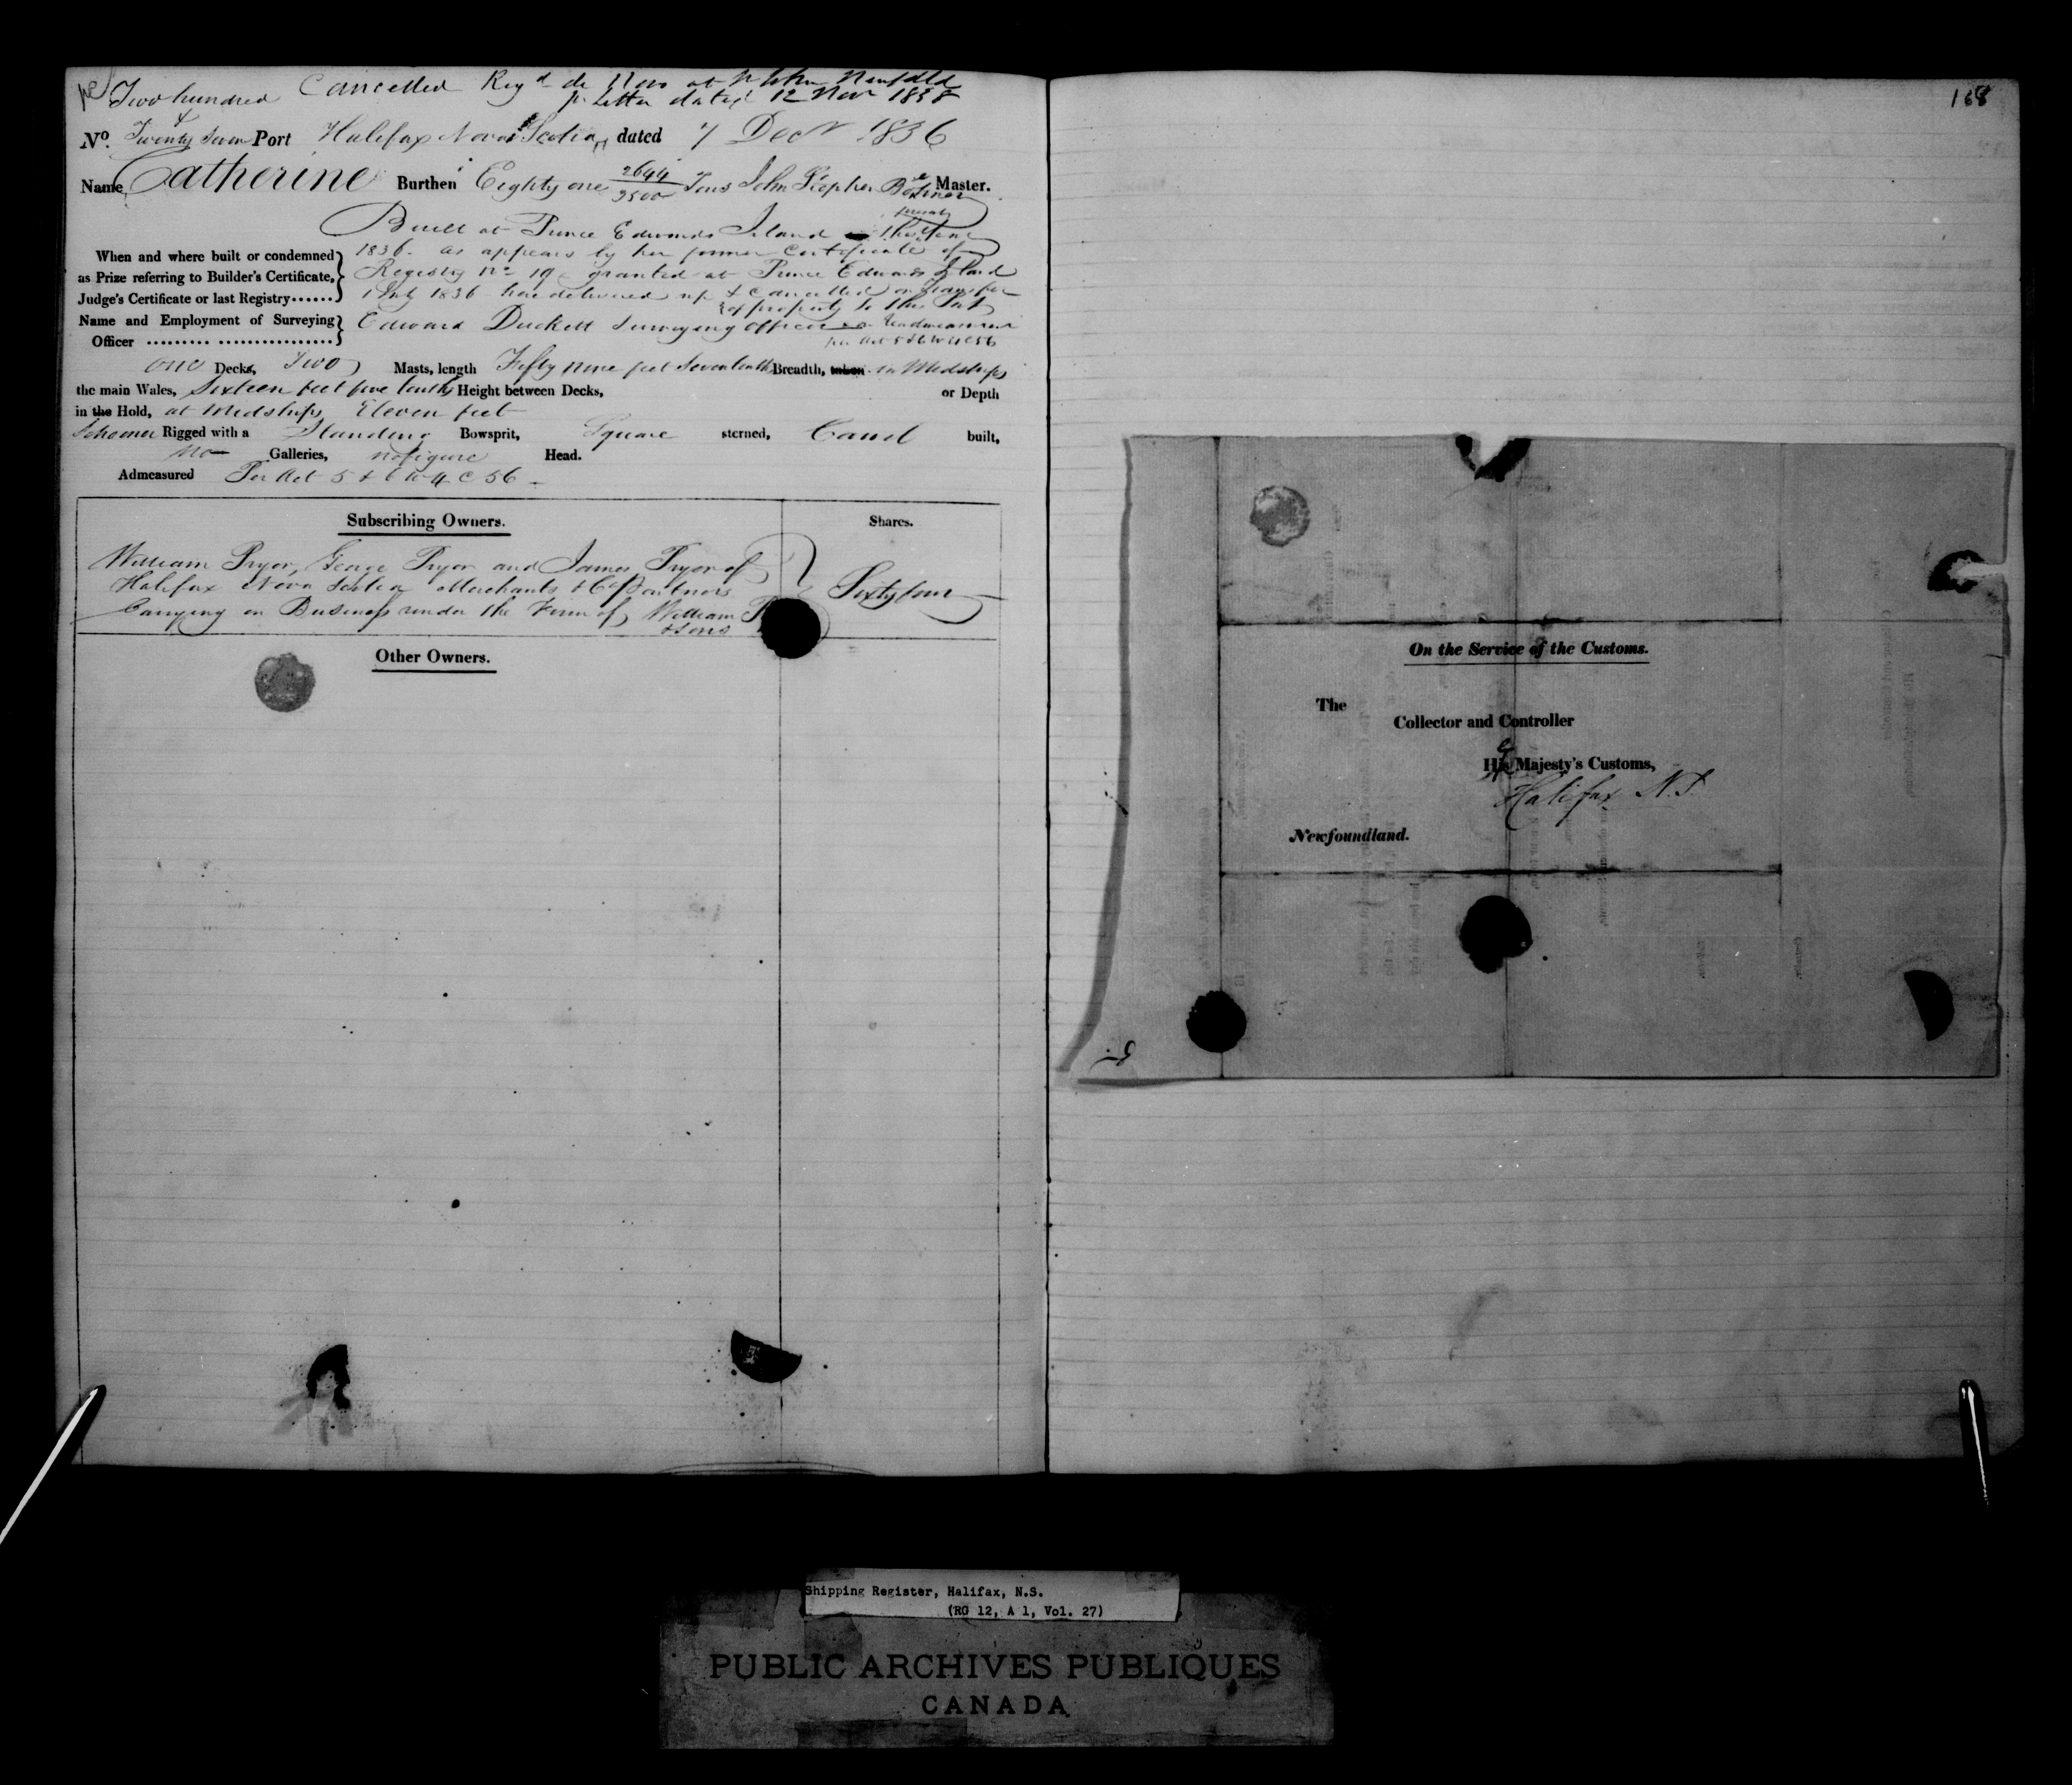 Two hundred Cancelled Regd de novo at St Johns Newfdld
pr Letter dated 12 Novr 1838
&
No. Twenty Seven Port Halifax Nova Scotia, dated 7 Decr 1836
Name Catherine Burthen Eighty one 2644/3500 Tons John Stephen Master.
Built at Prince Edwards Island
When and where built or condemned
as Prize referring to Builder's Certificate,
Judge's Certificate or last Registry......
1836. as appears by her former Certificate of
Registry No 19 granted at Prince Edwards Island
1836 here delivered up & Cancelled on Transfer
of property to this Port
Name and Employment of Surveying
Officer ......... ................
Edward Duckett Surveying Officer
per Act 5 & 6 W 4 C 56
one Decks, Two Masts, length Fifty nine feet Seven tenths Breadth, taken in Midships
the main Wales, Sixteen feet five tenths Height between Decks, or Depth
in the Hold, at Midships Eleven feet
Schooner Rigged with a Standing Bowsprit, Square sterned, Carvel built,
no Galleries, no figure Head.
Admeasured Per Act 5 & 6 W 4 C 56
Subscribing Owners. Shares.
William Pryor, George Pryor and James Pryor of
Halifax Nova Scotia Merchants & CoPartners
Carrying on Business under the Firm of William P
& Sons
Sixty four
Other Owners.
168
On the Service of the Customs.
The
Collector and Controller
His Majesty's Customs,
Halifax N.S.
Newfoundland.
Shipping Register, Halifax, N.S.
(RG 12, A 1, Vol. 27)
PUBLIC ARCHIVES PUBLIQUES
CANADA